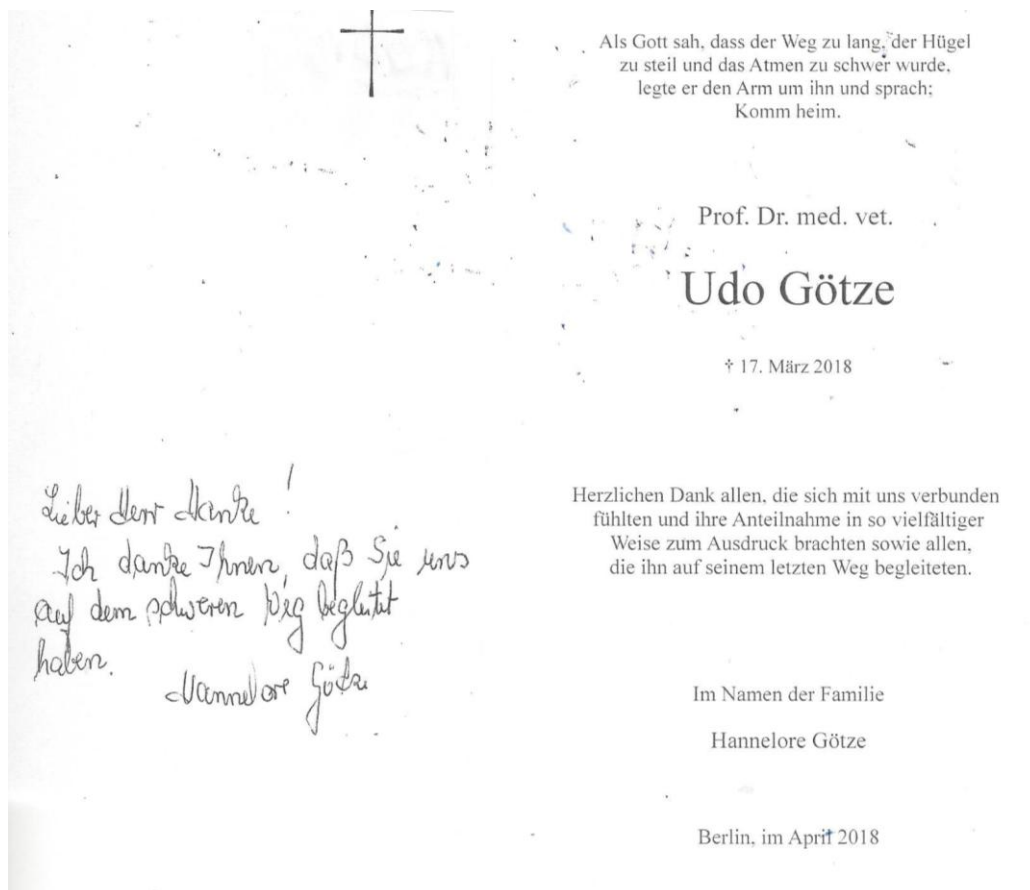 Lieber Herr Hanke !
Ich danke Ihnen, daß Sie uns
auf dem schweren Weg begleitet
haben.
Hannelore Götze
Als Gott sah, dass der Weg zu lang, der Hügel
zu steil und das Atmen zu schwer wurde,
legte er den Arm um ihn und sprach;
Komm heim.
Prof. Dr. med. vet.
Udo Götze
† 17. März 2018
Herzlichen Dank allen, die sich mit uns verbunden
fühlten und ihre Anteilnahme in so vielfältiger
Weise zum Ausdruck brachten sowie allen,
die ihn auf seinem letzten Weg begleiteten.
Im Namen der Familie
Hannelore Götze
Berlin, im April 2018